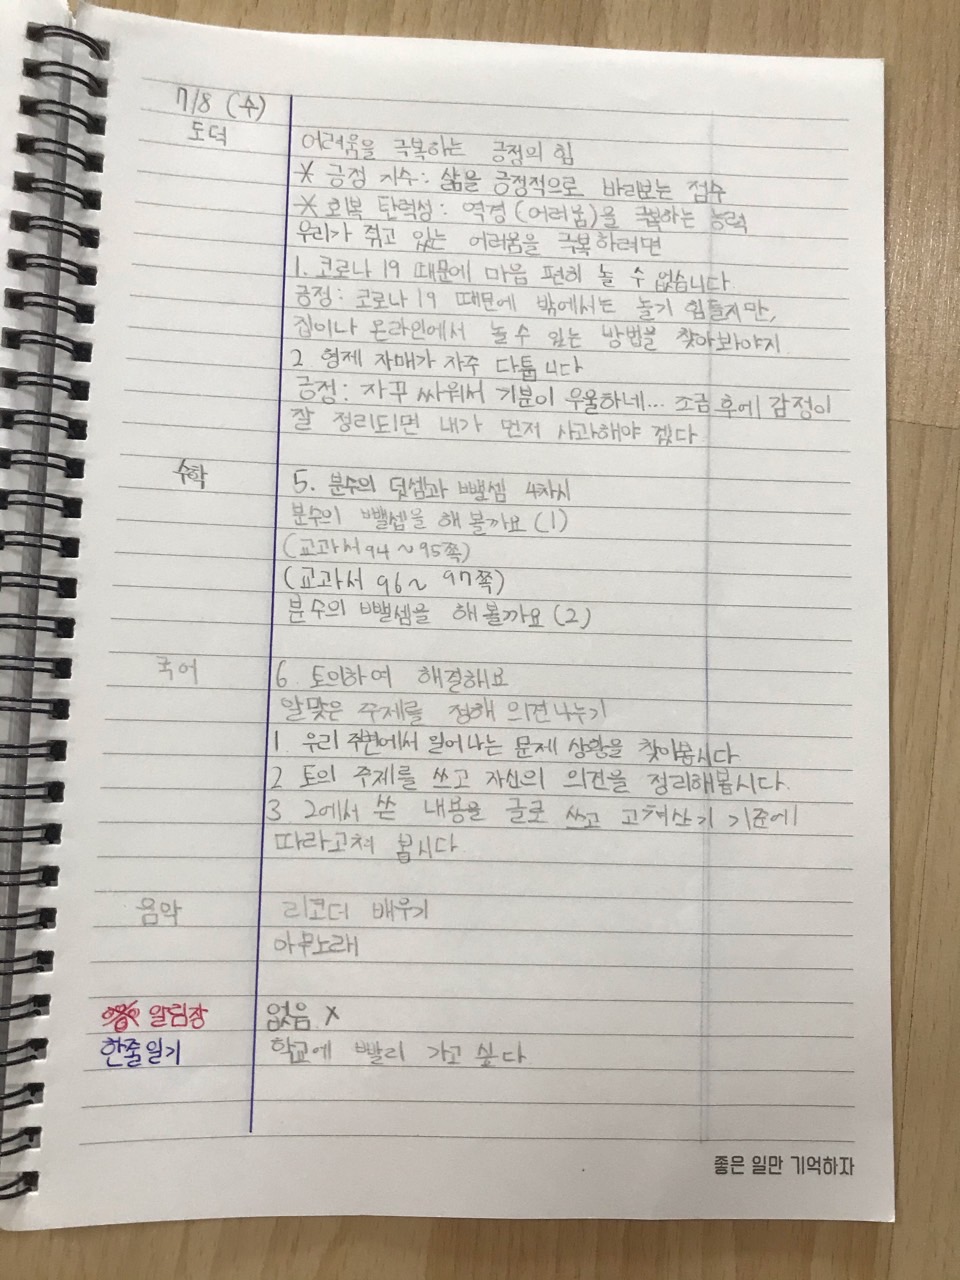 7/8 (수)
도덕 어려움을 극복하는 긍정의 힘
* 긍정 지수: 삶을 긍정적으로 바라보는 점수
* 회복 탄력성: 역경(어려움)을 극복하는 능력
우리가 겪고 있는 어려움을 극복하려면
1. 코로나19 때문에 마음 편히 놀 수 없습니다.
긍정: 코로나19 때문에 밖에서는 놀기 힘들지만,
집이나 온라인에서 놀 수 있는 방법을 찾아봐야지
2 형제 자매가 자주 다툽니다
긍정: 자꾸 싸워서 기분이 우울하네... 조금 후에 감정이
잘 정리되면 내가 먼저 사과해야 겠다
수학 5. 분수의 덧셈과 뺄셈 4차시
분수의 뺄셈을 해 볼까요 (1)
(교과서 94~95쪽)
(교과서 96~ 97쪽)
분수의 뺄셈을 해 볼까요 (2)
국어 6 토의하여 해결해요
알맞은 주제를 정해 의견나누기
1 우리 주변에서 일어나는 문제 상황을 찾아봅시다
2 토의 주제를 쓰고 자신의 의견을 정리해봅시다.
3 2에서 쓴 내용을 글로 쓰고 고쳐쓰기 기준에
따라고쳐 봅시다
음악 리코더 배우기
아무노래
알림장 없음 X
한줄일기 학교에 빨리 가고 싶다
좋은 일만 기억하자